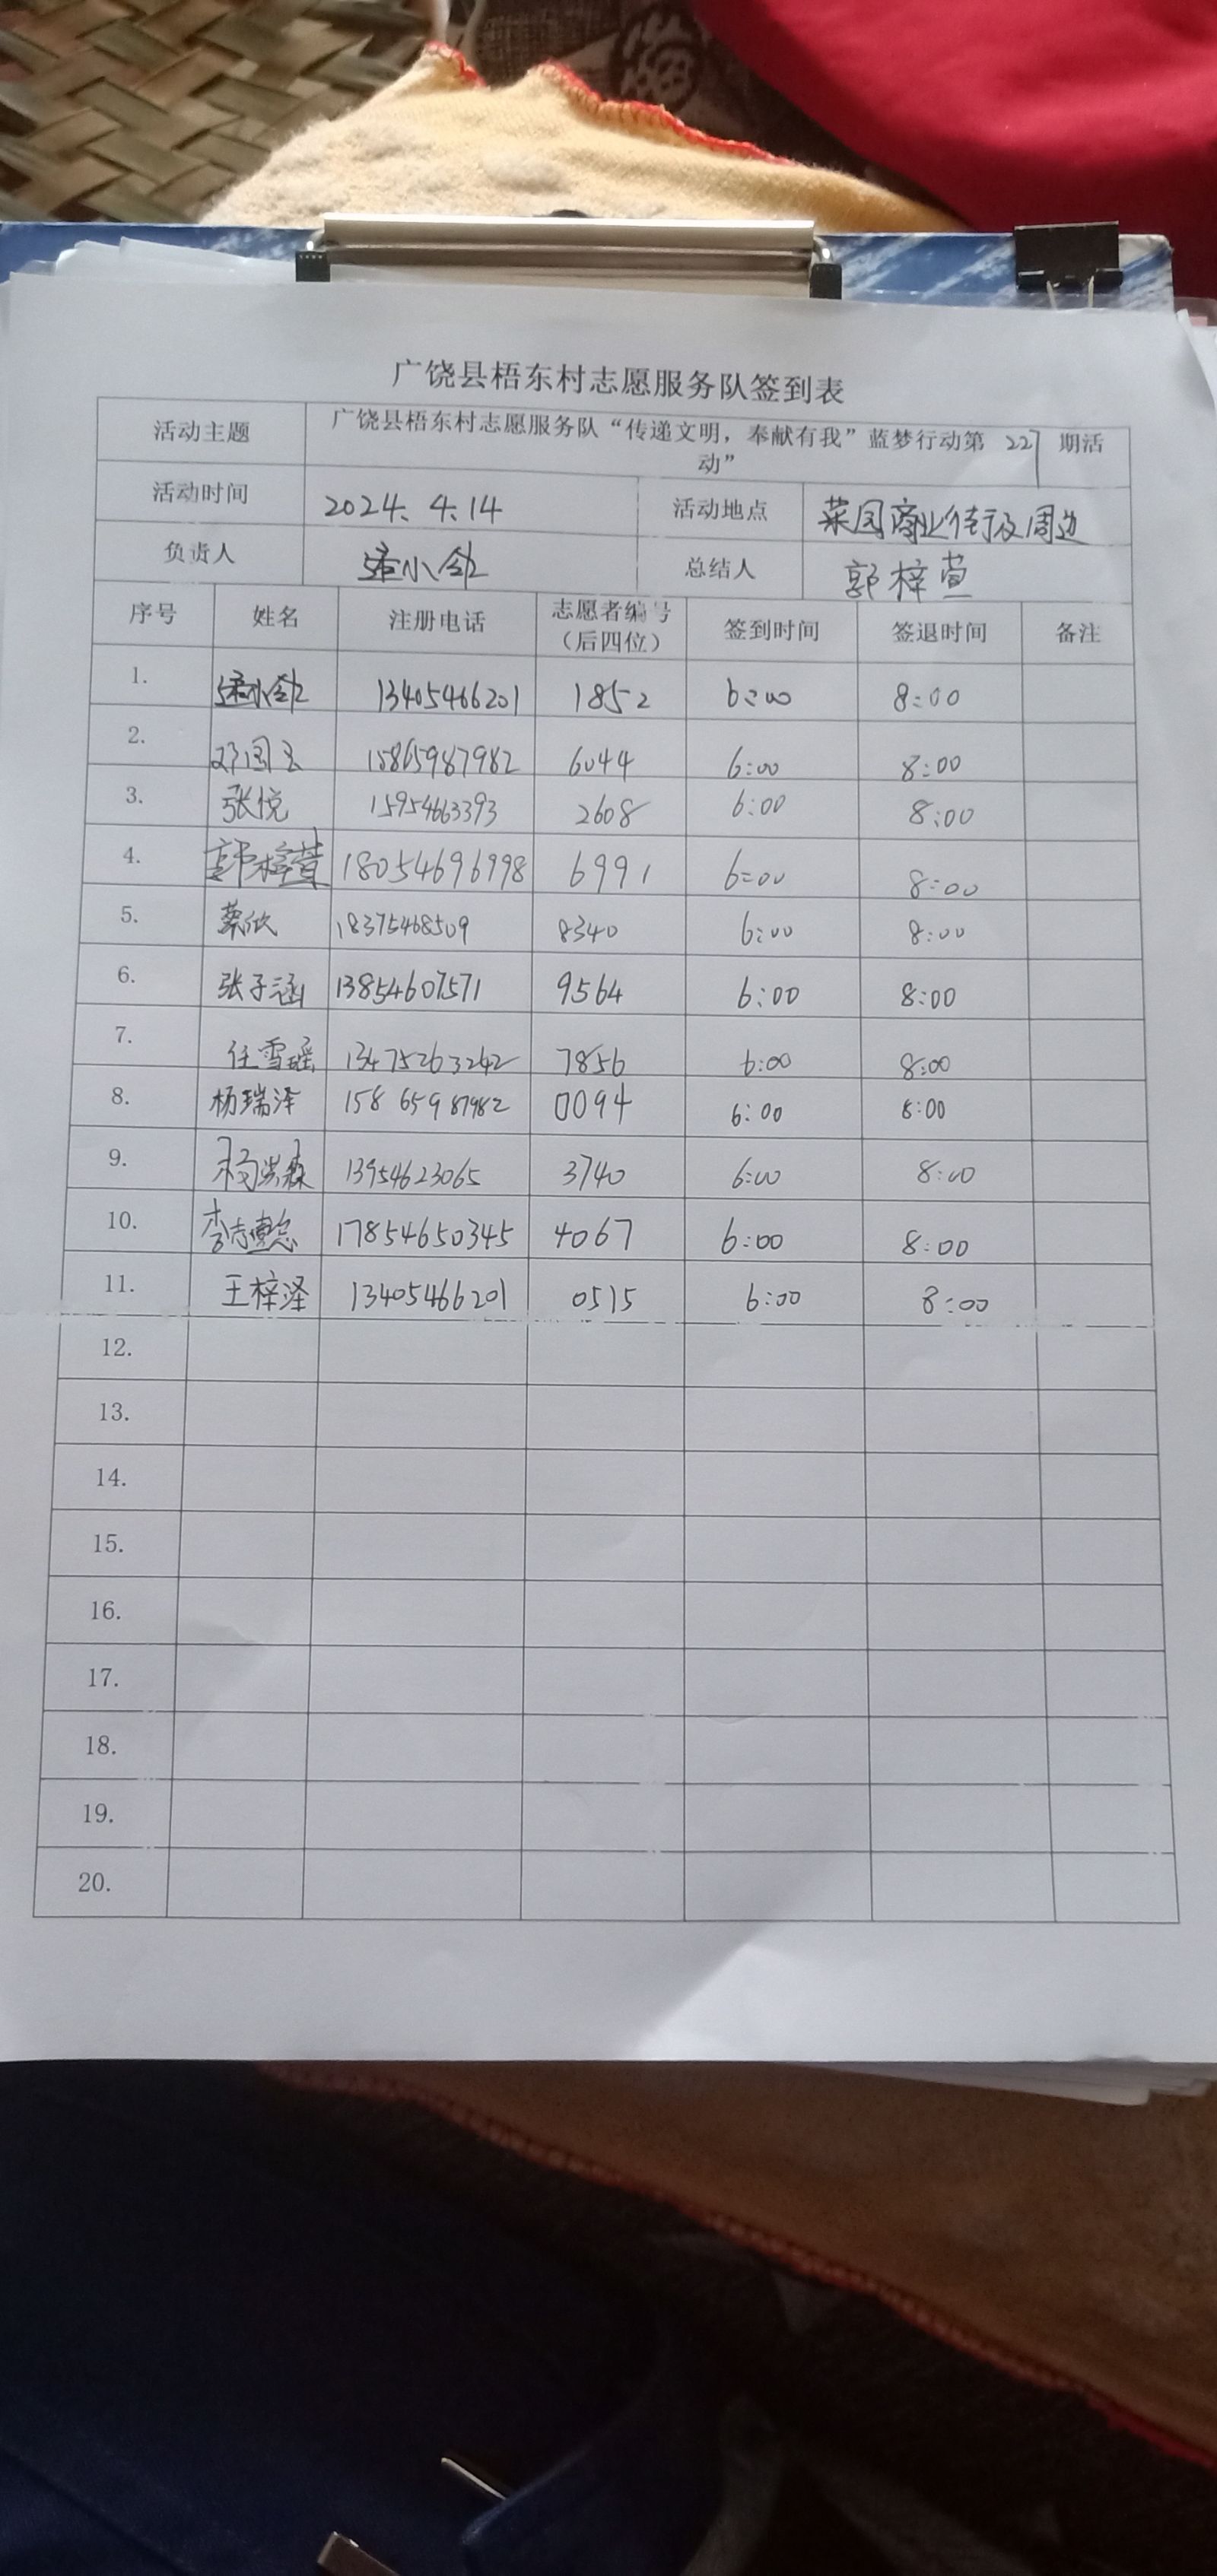 广饶县梧东村志愿服务队签到表
活动主题 广饶县梧东村志愿服务队“传递文明，奉献有我”蓝梦行动第 227 期活
动”
活动时间 2024.4.14 活动地点 菜园商业街及周边
负责人 小 总结人 郭梓萱
序号 姓名 注册电话 志愿者编号（后四位） 签到时间 签退时间 备注
1. 13405466201 1852 6:00 8:00
2. 邓国玉 15865987982 6044 6:00 8:00
3. 张悦 15954663393 2608 6:00 8:00
4. 郭梓萱 18054696998 6991 6:00 8:00
5. 蔡欣 18375468509 8340 6:00 8:00
6. 张子涵 13854607571 9564 6:00 8:00
7. 任雪瑶 13475263242 7856 6:00 8:00
8. 杨瑞泽 15865987982 0094 6:00 8:00
9. 杨洪森 13954623065 3740 6:00 8:00
10. 李志 17854650345 4067 6:00 8:00
11. 王梓泽 13405466201 0515 6:00 8:00
12.
13.
14.
15.
16.
17.
18.
19.
20.